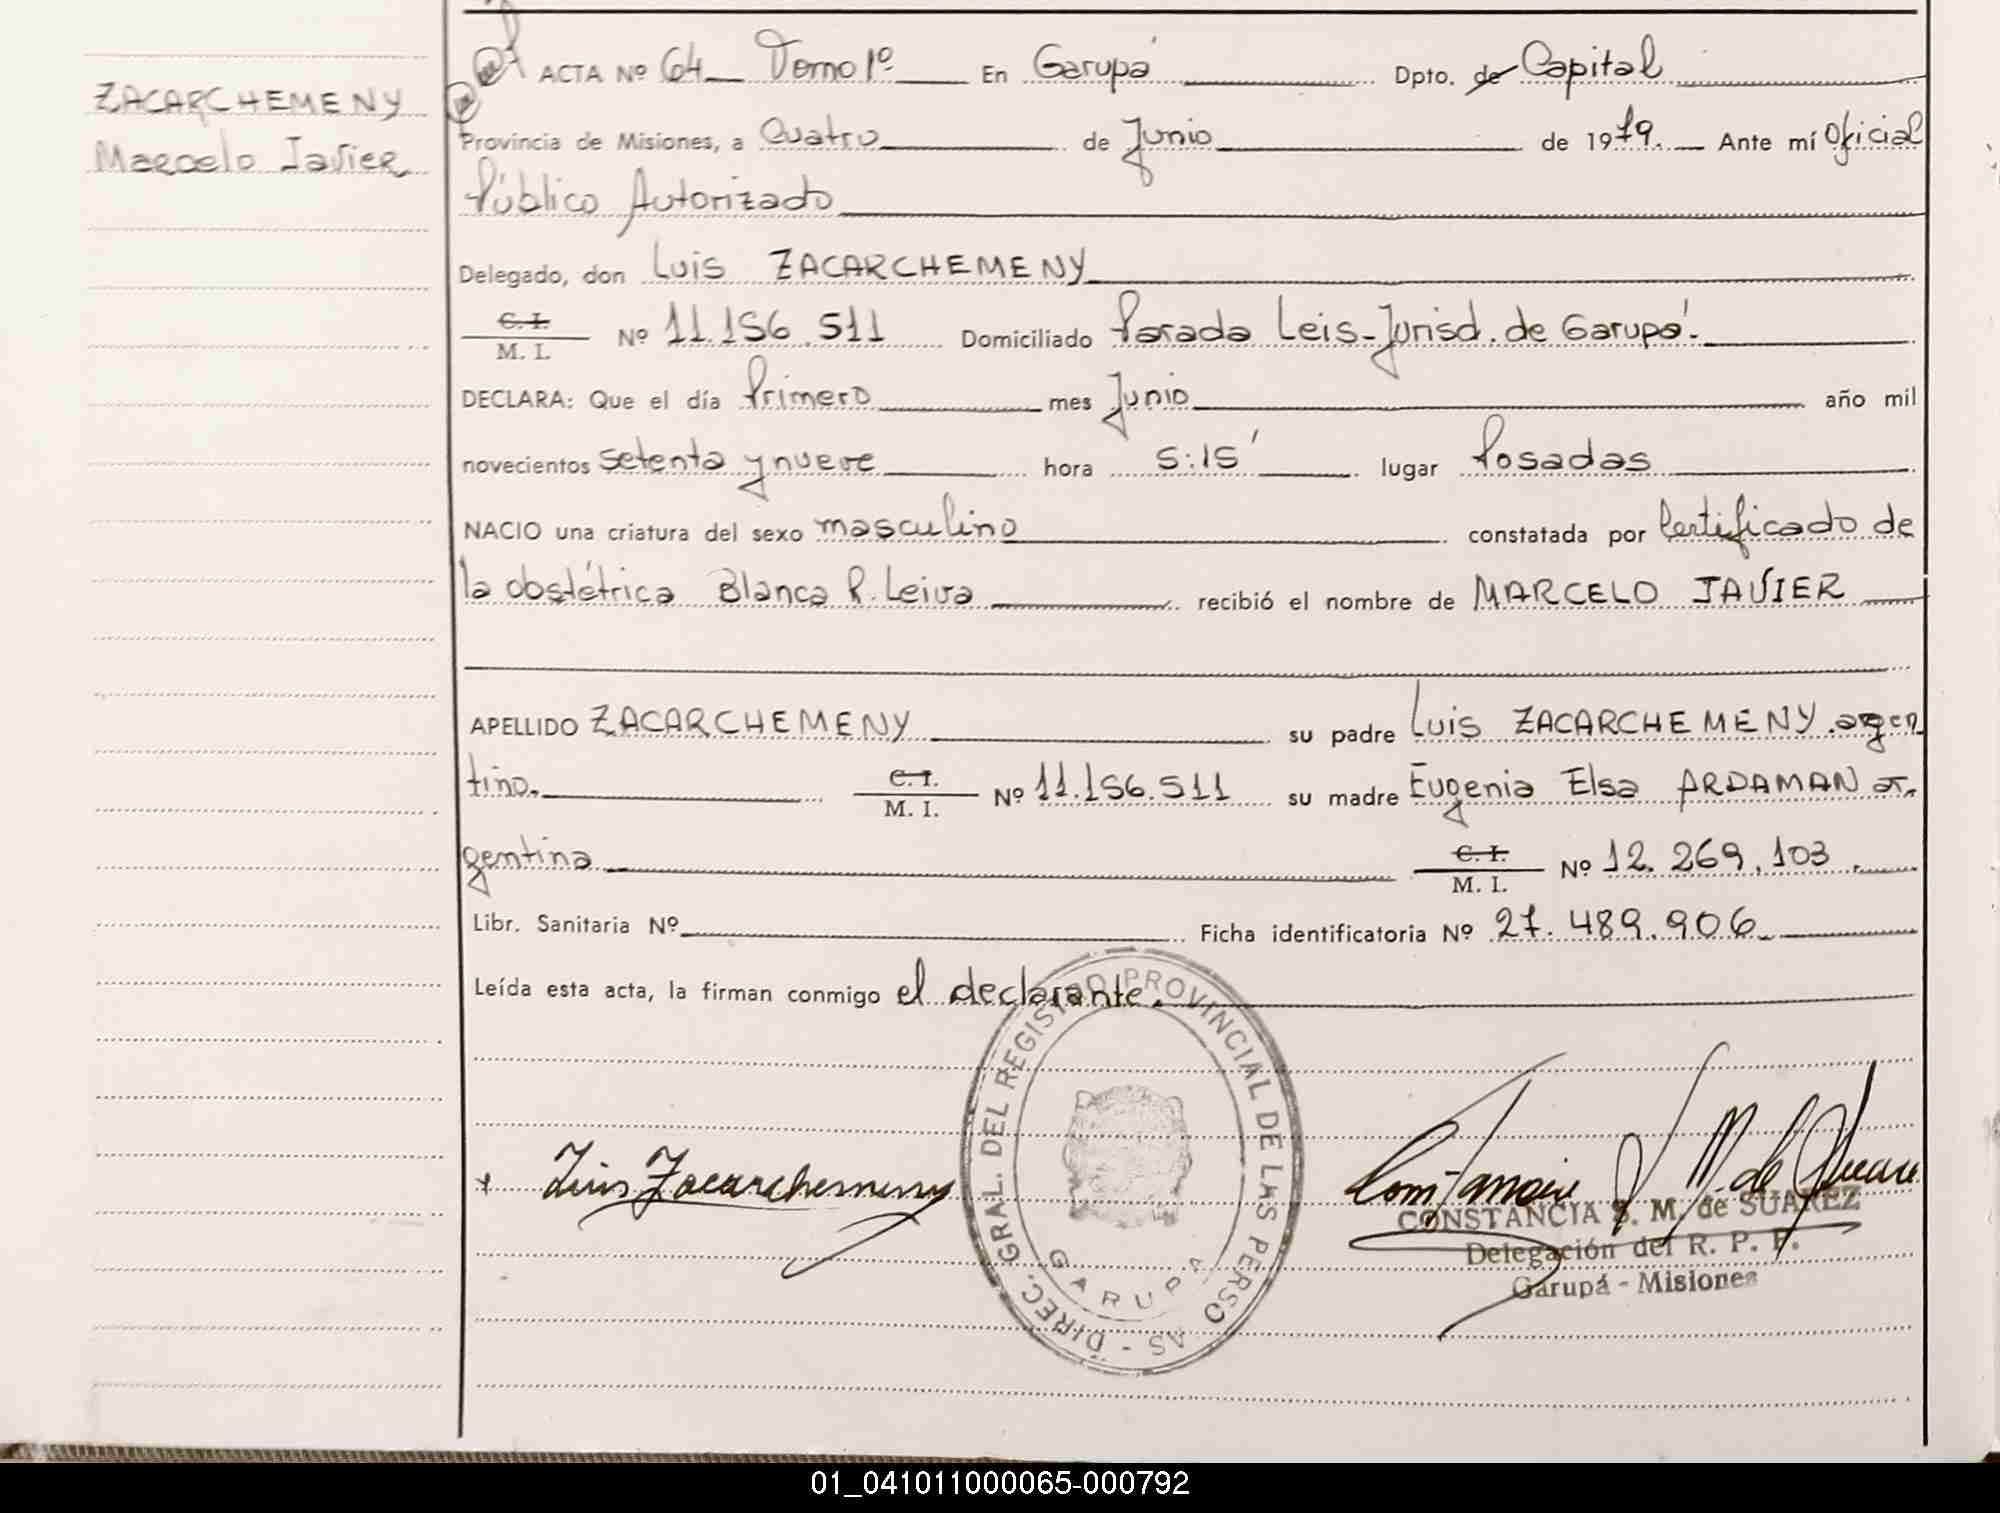 ZACARCHEMENY
Marcelo Javier
ACTA Nº 64 Tomo 1º En Garupá Dpto. de Capital
Provincia de Misiones, a Cuatro de Junio de 1979. Ante mí Oficial
Público Autorizado
Delegado, don Luis ZACARCHEMENY
C. I.
M. I. Nº 11.156.511 Domiciliado Parada Leis-Jurisd. de Garupá.
DECLARA: Que el día Primero mes Junio año mil
novecientos setenta y nueve hora 5:15' lugar Posadas
NACIO una criatura del sexo masculino constatada por Certificado de
la obstétrica Blanca R. Leiva recibió el nombre de MARCELO JAVIER
APELLIDO ZACARCHEMENY su padre Luis ZACARCHEMENY. argen
tino. C. I.
M. I. Nº 11.156.511 su madre Eugenia Elsa ARDAMAN ar.
gentina C. I.
M. I. Nº 12.269.103.
Libr. Sanitaria Nº Ficha identificatoria Nº 27.489.906
Leída esta acta, la firman conmigo el declarante.
DIREC. GRAL. DEL REGISTRO PROVINCIAL DE LAS PERSO AS -
GARUPA
Luis Zacarchemeny
Constancia S. M. de Suarez
CONSTANCIA S. M. de SUAREZ
Delegación del R. P. P.
Garupá - Misiones
01_041011000065-000792